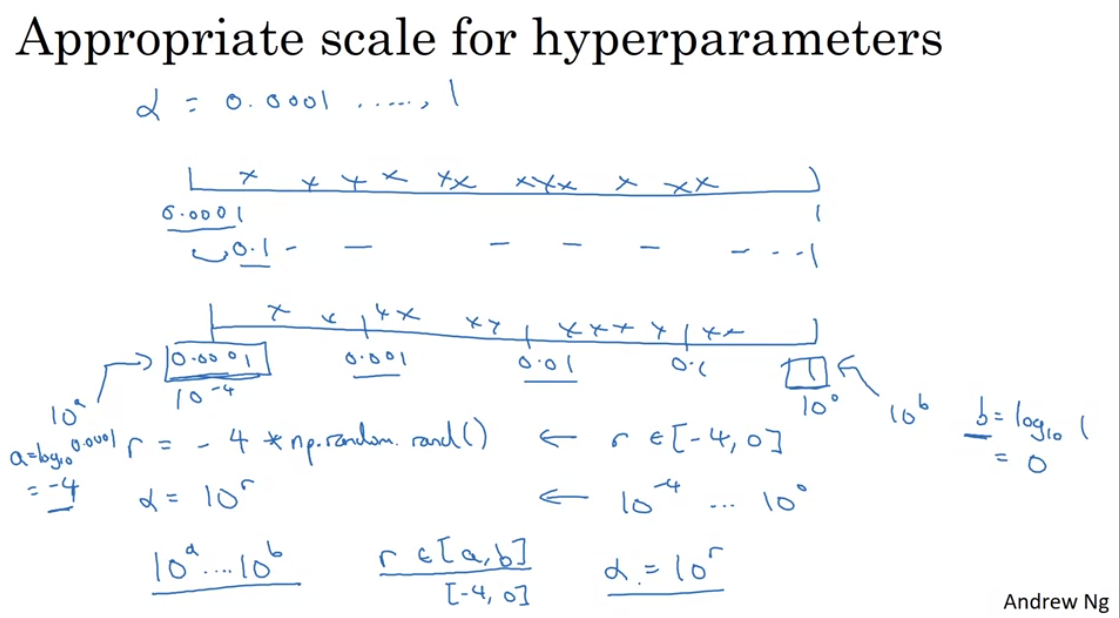 Appropriate scale for hyperparameters
α = 0.0001 ....., 1
0.0001 1
0.1 - - - - - - - - 1
0.0001 0.001 0.01 0.1 1
10^-4 10^0
10^a 10^b
a=log₁₀ 0.0001
= -4
r = -4 * np.random.rand() ← r ∈ [-4, 0]
b = log₁₀ 1
= 0
α = 10^r ← 10^-4 ... 10^0
10^a ... 10^b r ∈ [a, b] α = 10^r
[-4, 0]
Andrew Ng